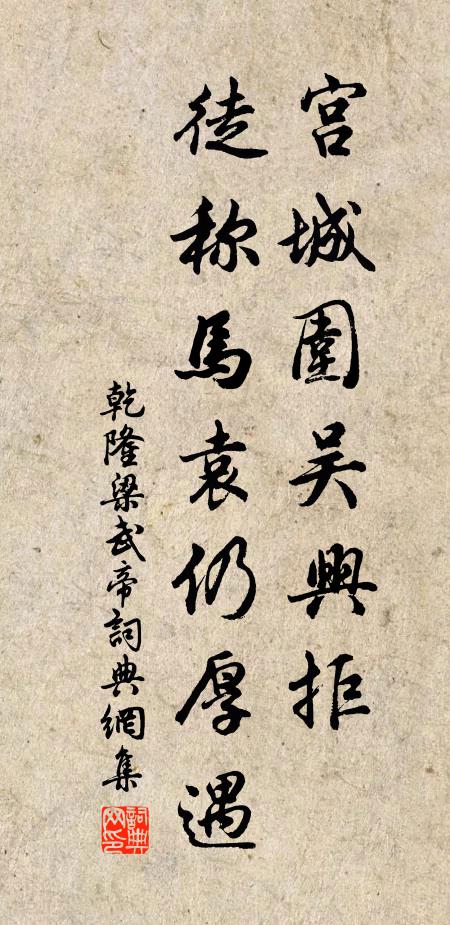 宫城圍吴興拒
徒称馬袁仍厚遇
乾隆梁武帝詞典網集
詞典网印